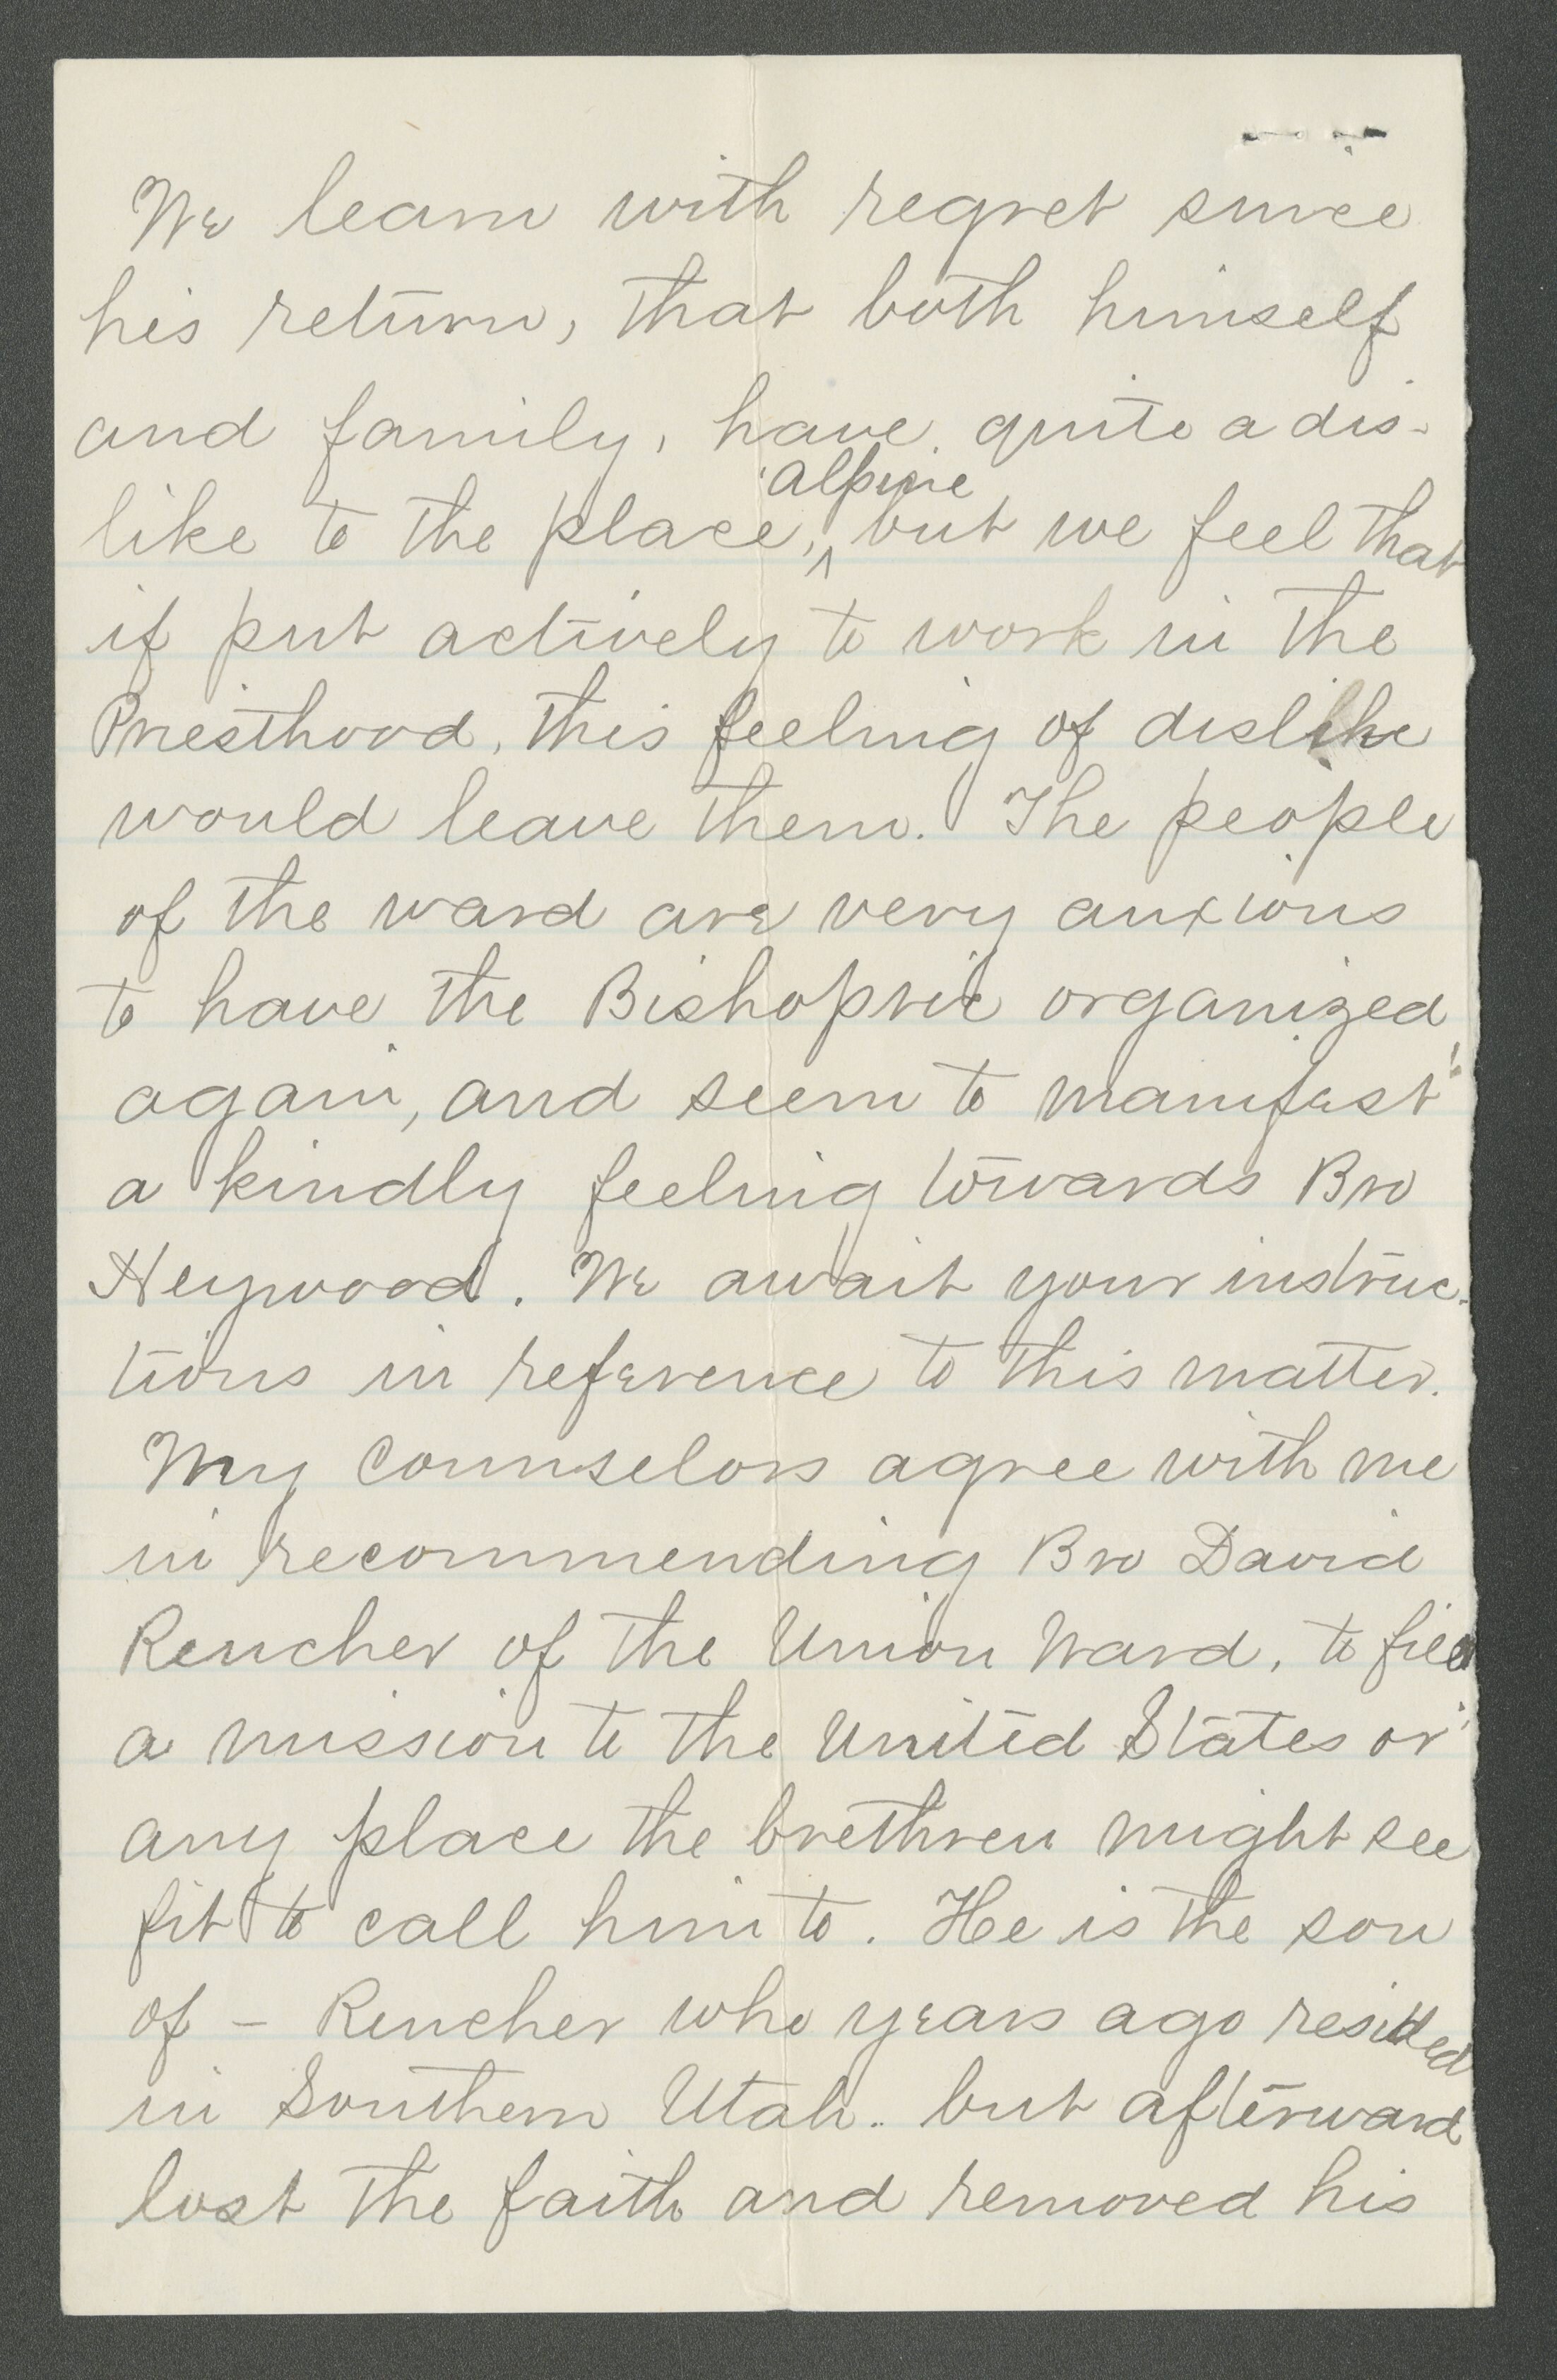 We learn with regret since
his return, that both himself
and family, have quite a dis-
alpine
like to the place, ^ but we feel that
if put actively to work in the
Priesthood, this feeling of dislike
would leave them. The people
of the ward are very anxious
to have the Bishopric organized
again, and seem to manifest
a kindly feeling towards Bro
Heywood. We await your instruc-
tions in reference to this matter.
My Counselors agree with me
in recommending Bro David
Rencher of the Union Ward, to fill
a mission to the United States or
any place the brethren might see
fit to call him to. He is the son
of – Rencher who years ago resided
in Southern Utah.. but afterward
lost the faith and removed his